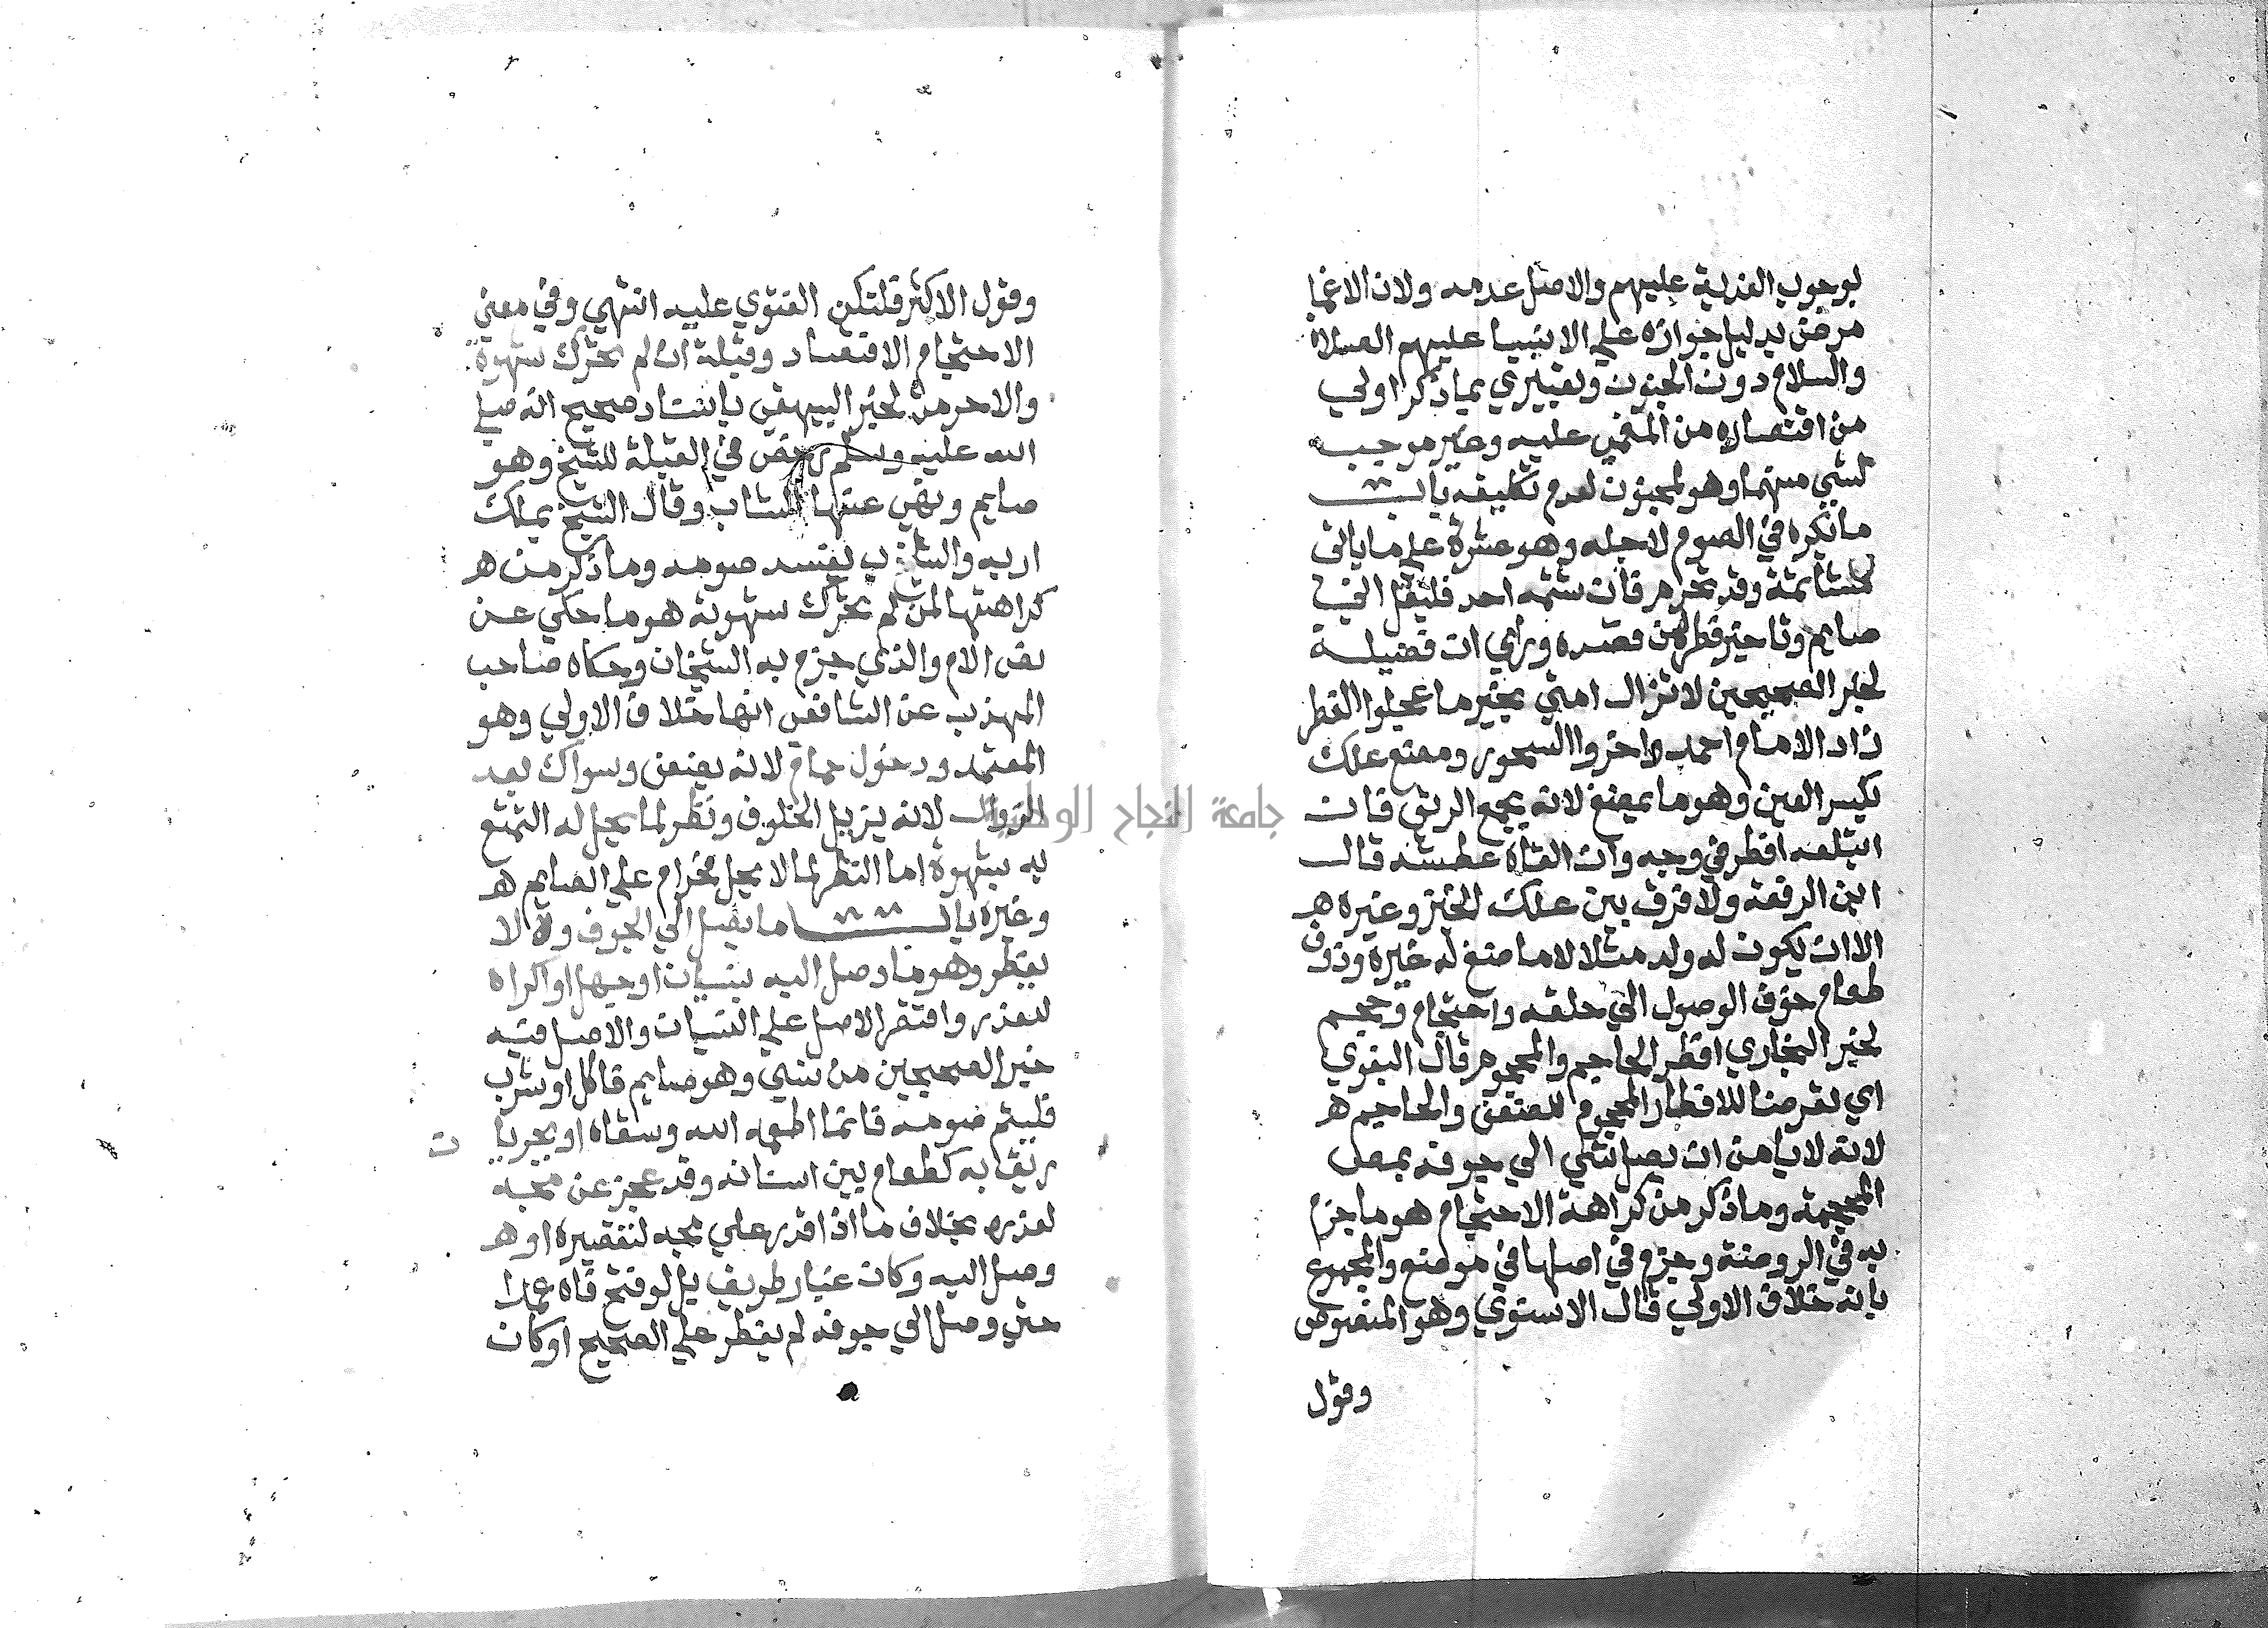 بوجوب الفدية عليهم والاصل عدمه ولان الاغما
مرض بدليل جوازه علي الانبيا عليهم الصلاة
والسلام دون الجنون وتعبيري بما ذكر اولي
من اقتصاره من المغمي عليه وغير موجب
لشي منهما وهو لمجنون لعدم تكليفه باب
ما يكره في الصوم لاجله وهو عشرة علي ما ياتي
مشاتمة وقد تحرم فان شتمه احد فليقل اني
صايم وتاخير فطر من قصده وراي ان فضيلة
لخبر الصحيحين لا تزال امتي بخير ما عجلوا الفطر
زاد الامام احمد واخروا السحور ومضغ علك
بكسر العين وهو ما يمضغ لانه يجمع الريق فان
ابتلعه افطر في وجه وان القاه عطشه قال
ابن الرفعة ولا فرق بين علك الخبز وغيره هـ
الا ان يكون له ولد مثلا لا ما ضغ له غيره وذوق
طعام خوف الوصول الي حلقه واحتجام وحجم
لخبر البخاري افطر الحاجم والمحجوم قال البغوي
اي تعرضا للافطار المحجوم للضعف والحاجم هـ
لانه لا يامن ان يصل شي الي جوفه بمص
المحجمة وما ذكر من كراهة الاحتجام هو ما جزم
به في الروضة وجزم في اصلها في موضع والمجموع
بانه خلاف الاولي قال الاسنوي وهو المنصوص
وقول
وقول الاكثر فلتكن الفتوي عليه انتهي وفي معني
الاحتجام الافتصاد وقبلة ان لم تحرك شهوة
والا حرمت لخبر البيهقي باسناد صحيح انه صلي
الله عليه وسلم رخص في القبلة للشيخ وهو
صايم ونهي عنها الشاب وقال الشيخ يملك
اربه والشاب يفسد صومه وما ذكر من هـ
كراهتها لمن لم تحرك شهوته هو ما حكي عن
نص الام والذي جزم به الشيخان وحكاه صاحب
المهذب عن الشافعي انها خلاف الاولي وهو
المعتمد ودخول حمام لانه يضعف وسواك بعد
الزوال لانه يزيل الخلوف ونظر لما يحل له التمتع
به بشهوة اما النظر لما لا يحل فحرام علي الصايم هـ
وغيره باب ما يصل الي الجوف ولا
يفطر وهو ما وصل اليه بنسيان او جهل او اكراه
للعذر واقتصر الاصل علي النسيان والاصل فيه
خبر الصحيحين من نسي وهو صايم فاكل او شرب
فليتم صومه فانما اطعمه الله وسقاه او بجريان
ريق به كطعام بين اسنانه وقد عجز عن مجه
لعذره بخلاف ما اذا قدر علي مجه لتقصيره او هـ
وصل اليه وكان غبار طريق بل لو فتح فاه عمدا
حتي وصل الي جوفه لم يفطر علي الصحيح او كان
جامعة النجاح الوطنية